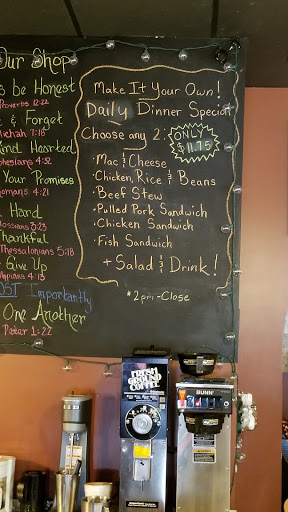 Our Shop
s be Honest
Proverbs 12:22
& Forget
Micah 7:18
Kind Hearted
Ephesians 4:32
Your Promises
Romans 4:21
Hard
Colossians 3:23
Thankful
Thessalonians 5:18
Give Up
OST Importantly
One Another
Peter 1:22
Make It Your Own!
Daily Dinner Special
Choose any 2:
ONLY
$11.75
• Mac & Cheese
• Chicken, Rice & Beans
• Beef Stew
• Pulled Pork Sandwich
• Chicken Sandwich
• Fish Sandwich
+ Salad & Drink!
*2pm-Close
FRESH
GROUND
COFFEE
BUNN